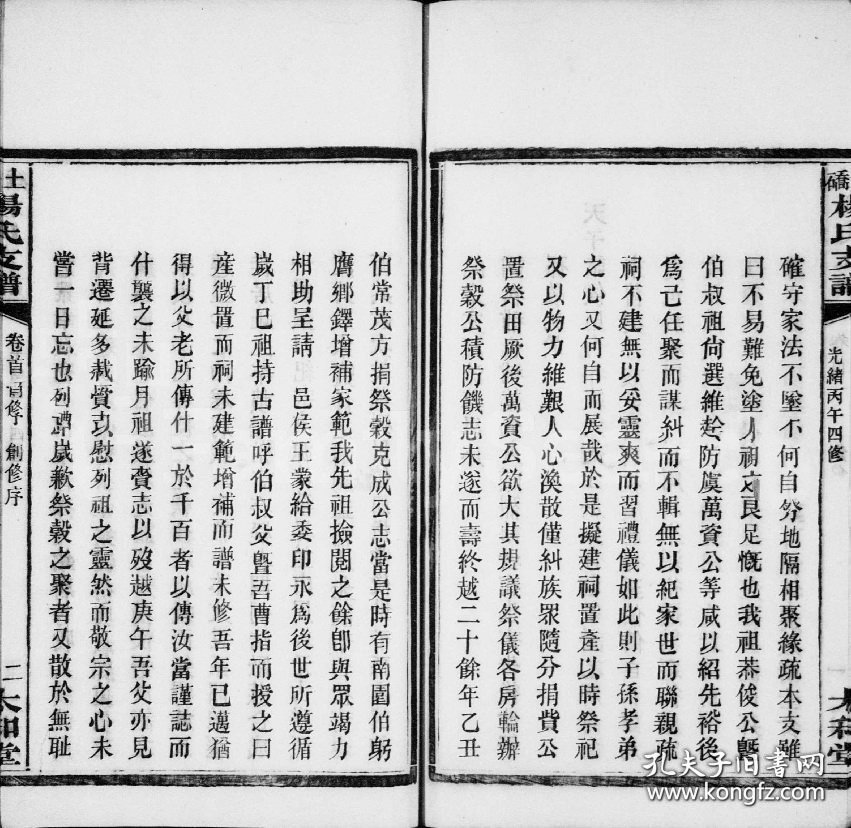 礄楊氏支譜
光緒丙午四修
一
太和堂
確守家法不墜不何自分地隔相聚緣疏本支難
曰不易難免塗人祠文良足慨也我祖恭俊公曁
伯叔祖尙選維趁防虞萬資公等咸以紹先裕後
爲己任聚而謀糾而不輯無以紀家世而聯親疏
祠不建無以妥靈爽而習禮儀如此則子孫孝弟
之心又何自而展哉於是擬建祠置產以時祭祀
又以物力維艱人心渙散僅糾族眾隨分捐貲公
置祭田厥後萬資公欲大其規議祭儀各房輪辦
祭穀公積防饑志未遂而壽終越二十餘年乙丑
伯常茂方捐祭穀克成公志當是時有南圍伯躬
膺鄉鐸增補家範我先祖撿閱之餘卽與眾竭力
相助呈請 邑侯王蒙給委印永爲後世所遵循
歲丁巳祖持古譜呼伯叔父曁吾曹指而授之曰
産微置而祠未建範增補而譜未修吾年已邁猶
得以父老所傳什一於千百者以傳汝當謹誌而
什襲之未踰月祖遂賫志以歿越庚午吾父亦見
背遷延多載貲以慰列祖之靈然而敬宗之心未
嘗一日忘也 歲歉祭穀之聚者又散於無耻
土楊氏支譜
卷首 創修序
二
太和堂
孔夫子旧书网
www.kongfz.com